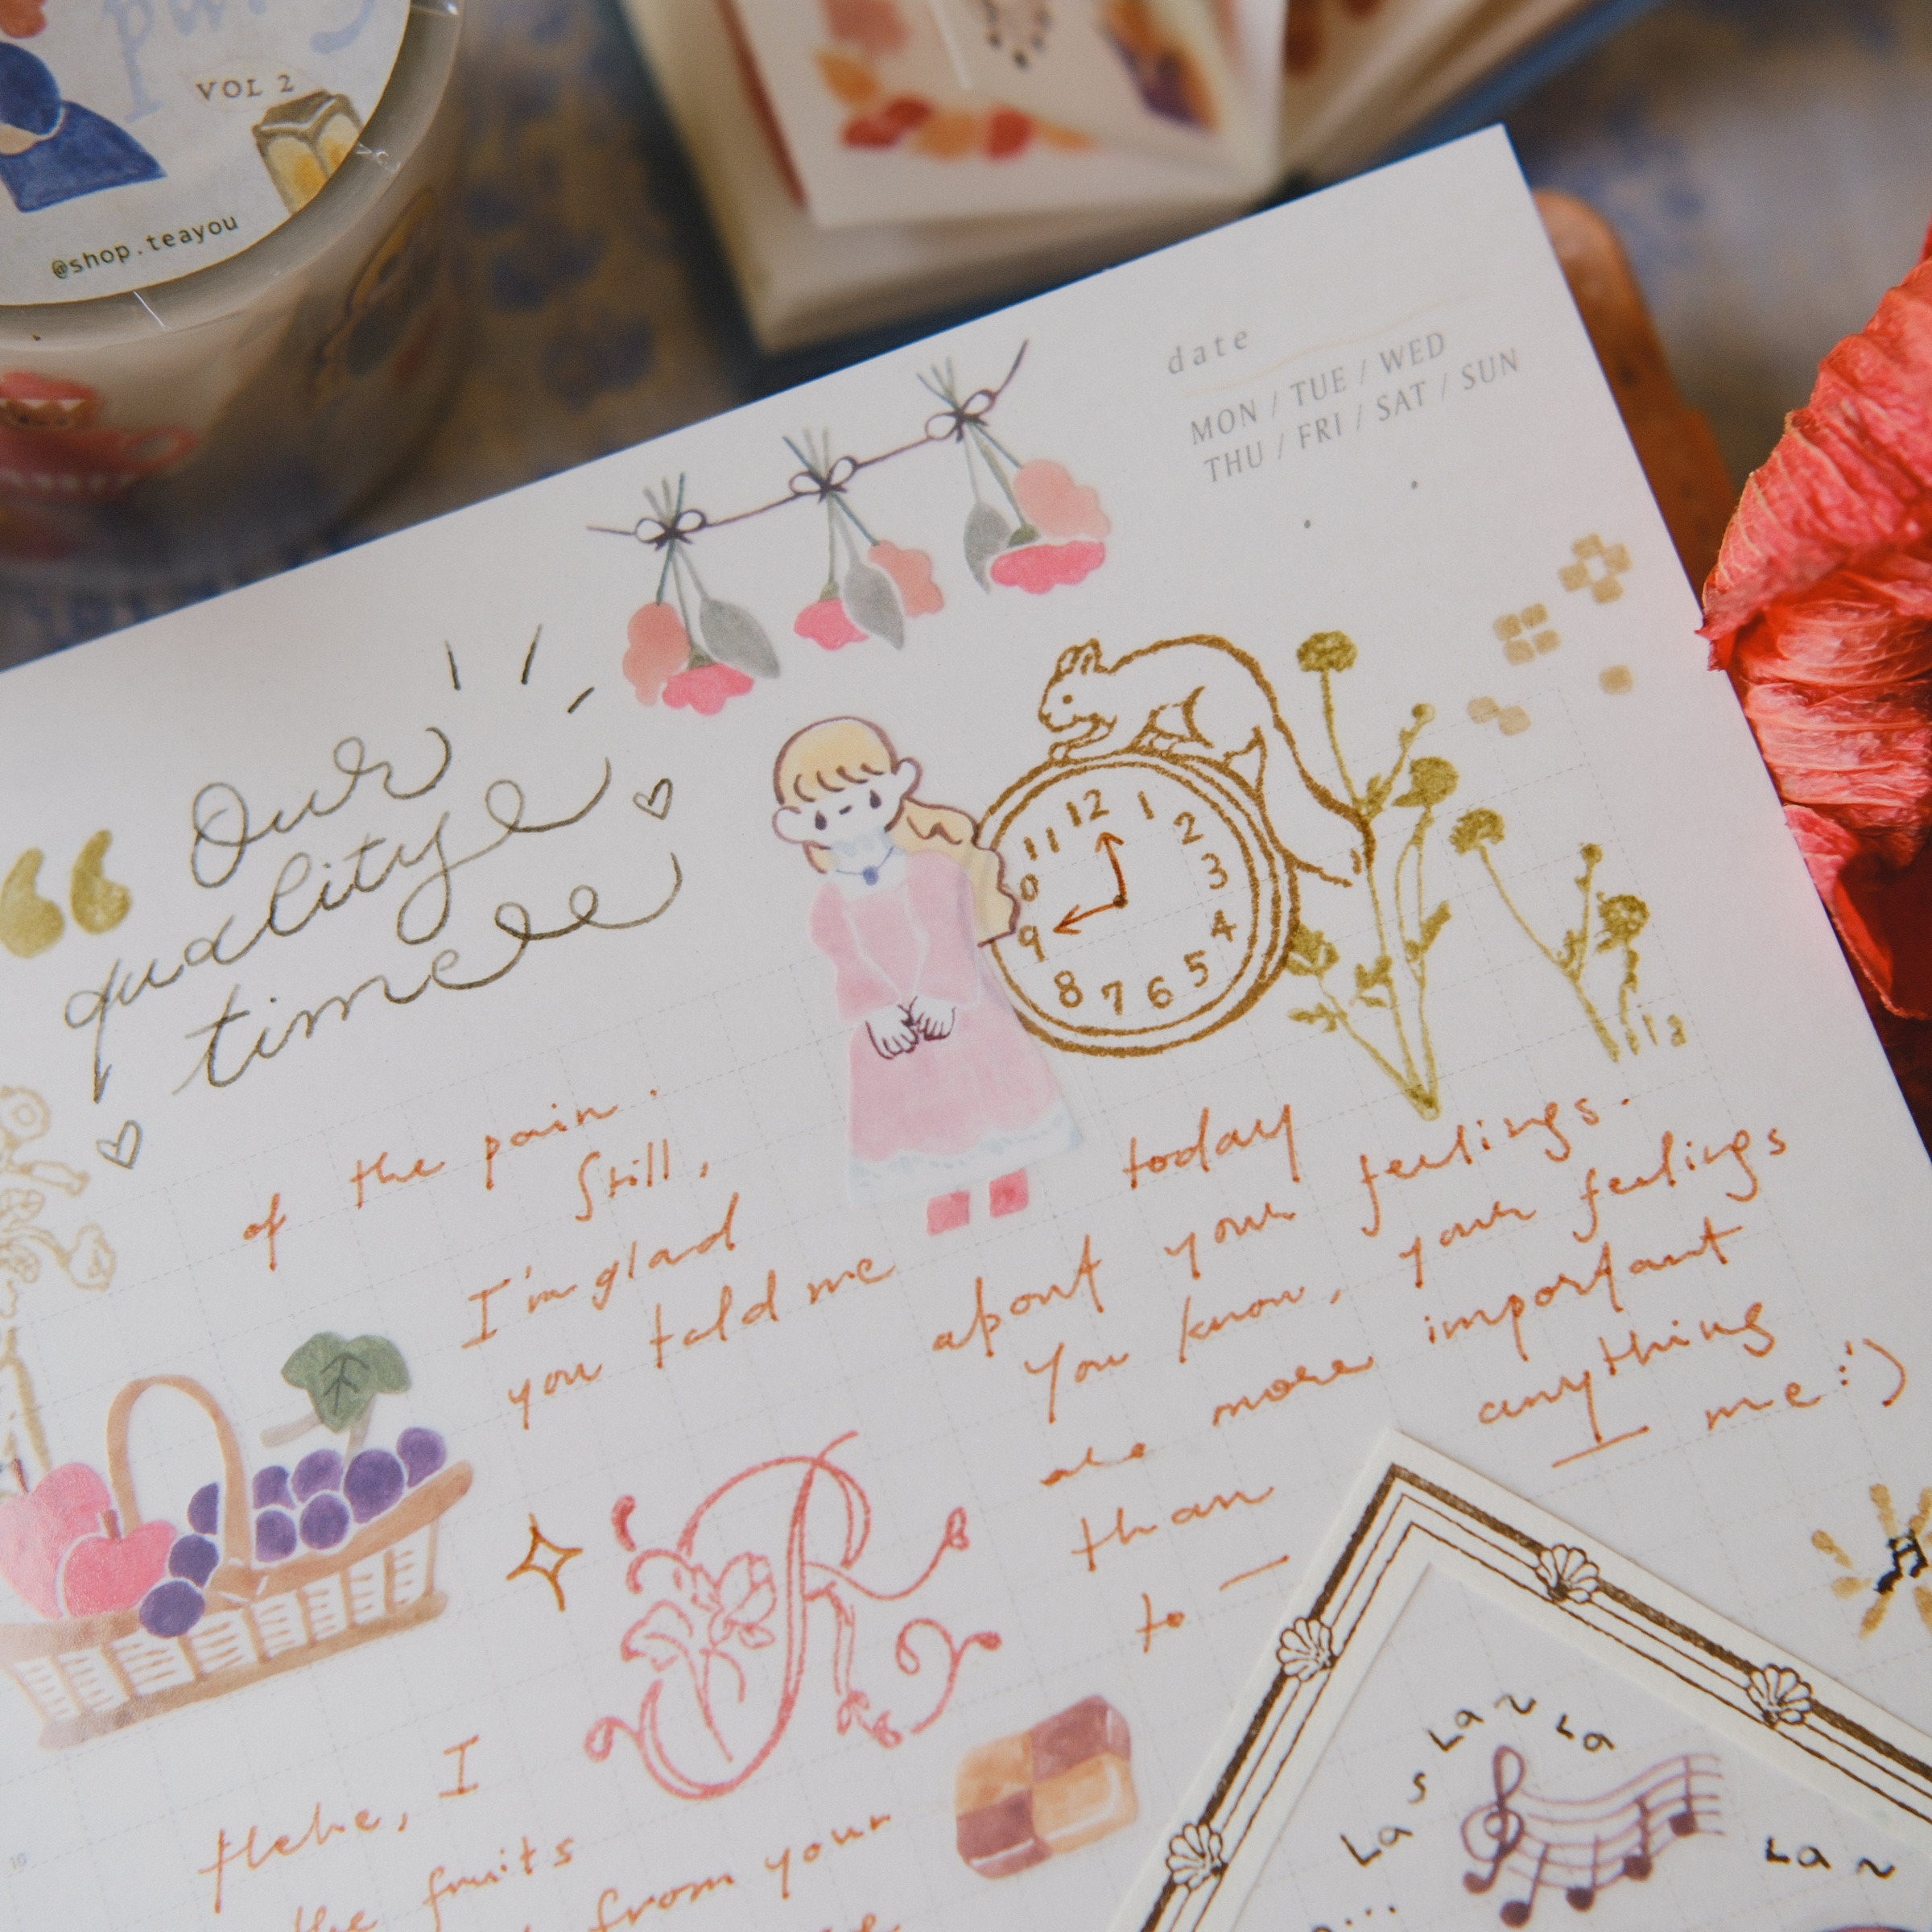 VOL 2
@shop.teayou
date
MON / TUE / WED
THU / FRI / SAT / SUN
Our
quality
time
12 1 2 3 4 5 6 7 8 9 0 11
of the pain.
Still,
I'm glad
you told me
today
about your feelings.
You know, your feelings
are more important
than anything
to me :')
R
Hehe, I
the fruits
from your
s La ~ La
La
La ~